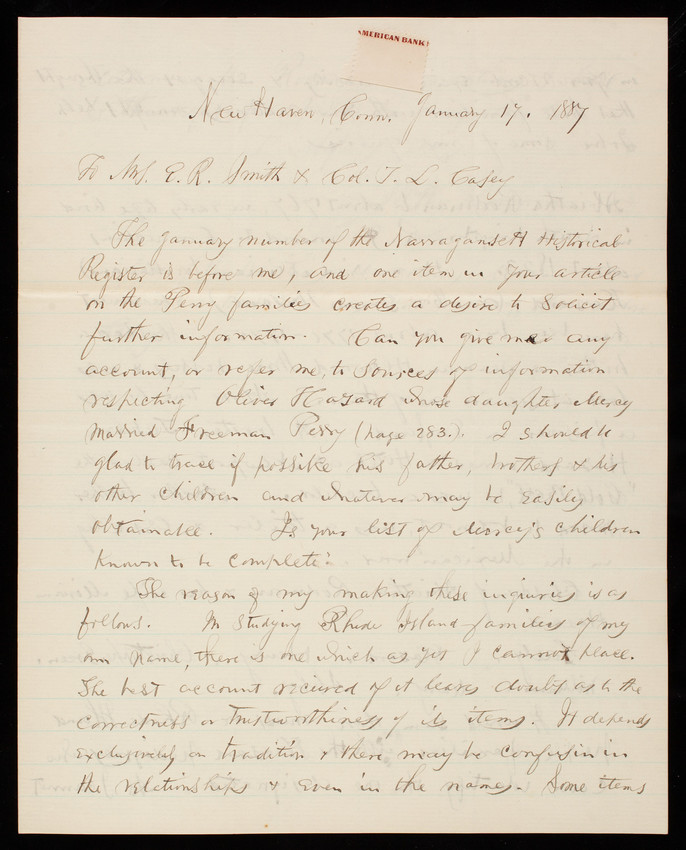 AMERICAN BANK
New Haven, Conn. January 17. 1887
To Mrs. E. R. Smith & Col. T. L. Casey
The January number of the Narragansett Historical
Register is before me, and one item in your article
on the Perry families creates a desire to solicit
further information. Can you give me any
account, or refer me, to sources of information
respecting Oliver Hazard whose daughter Mercy
married Freeman Perry (page 283.). I should be
glad to trace if possible his father, brothers & his
other children and whatever may be easily
obtainable. Is your list of Mercy's children
known to be complete?
The reason of my making these inquiries is as
follows. In studying Rhode Island families of my
own name, there is one which as yet I cannot place.
The best account received of it leaves doubt as to the
correctness or trustworthiness of its items. It depends
exclusively on tradition & there may be confusion in
the relationships & even in the names. Some items